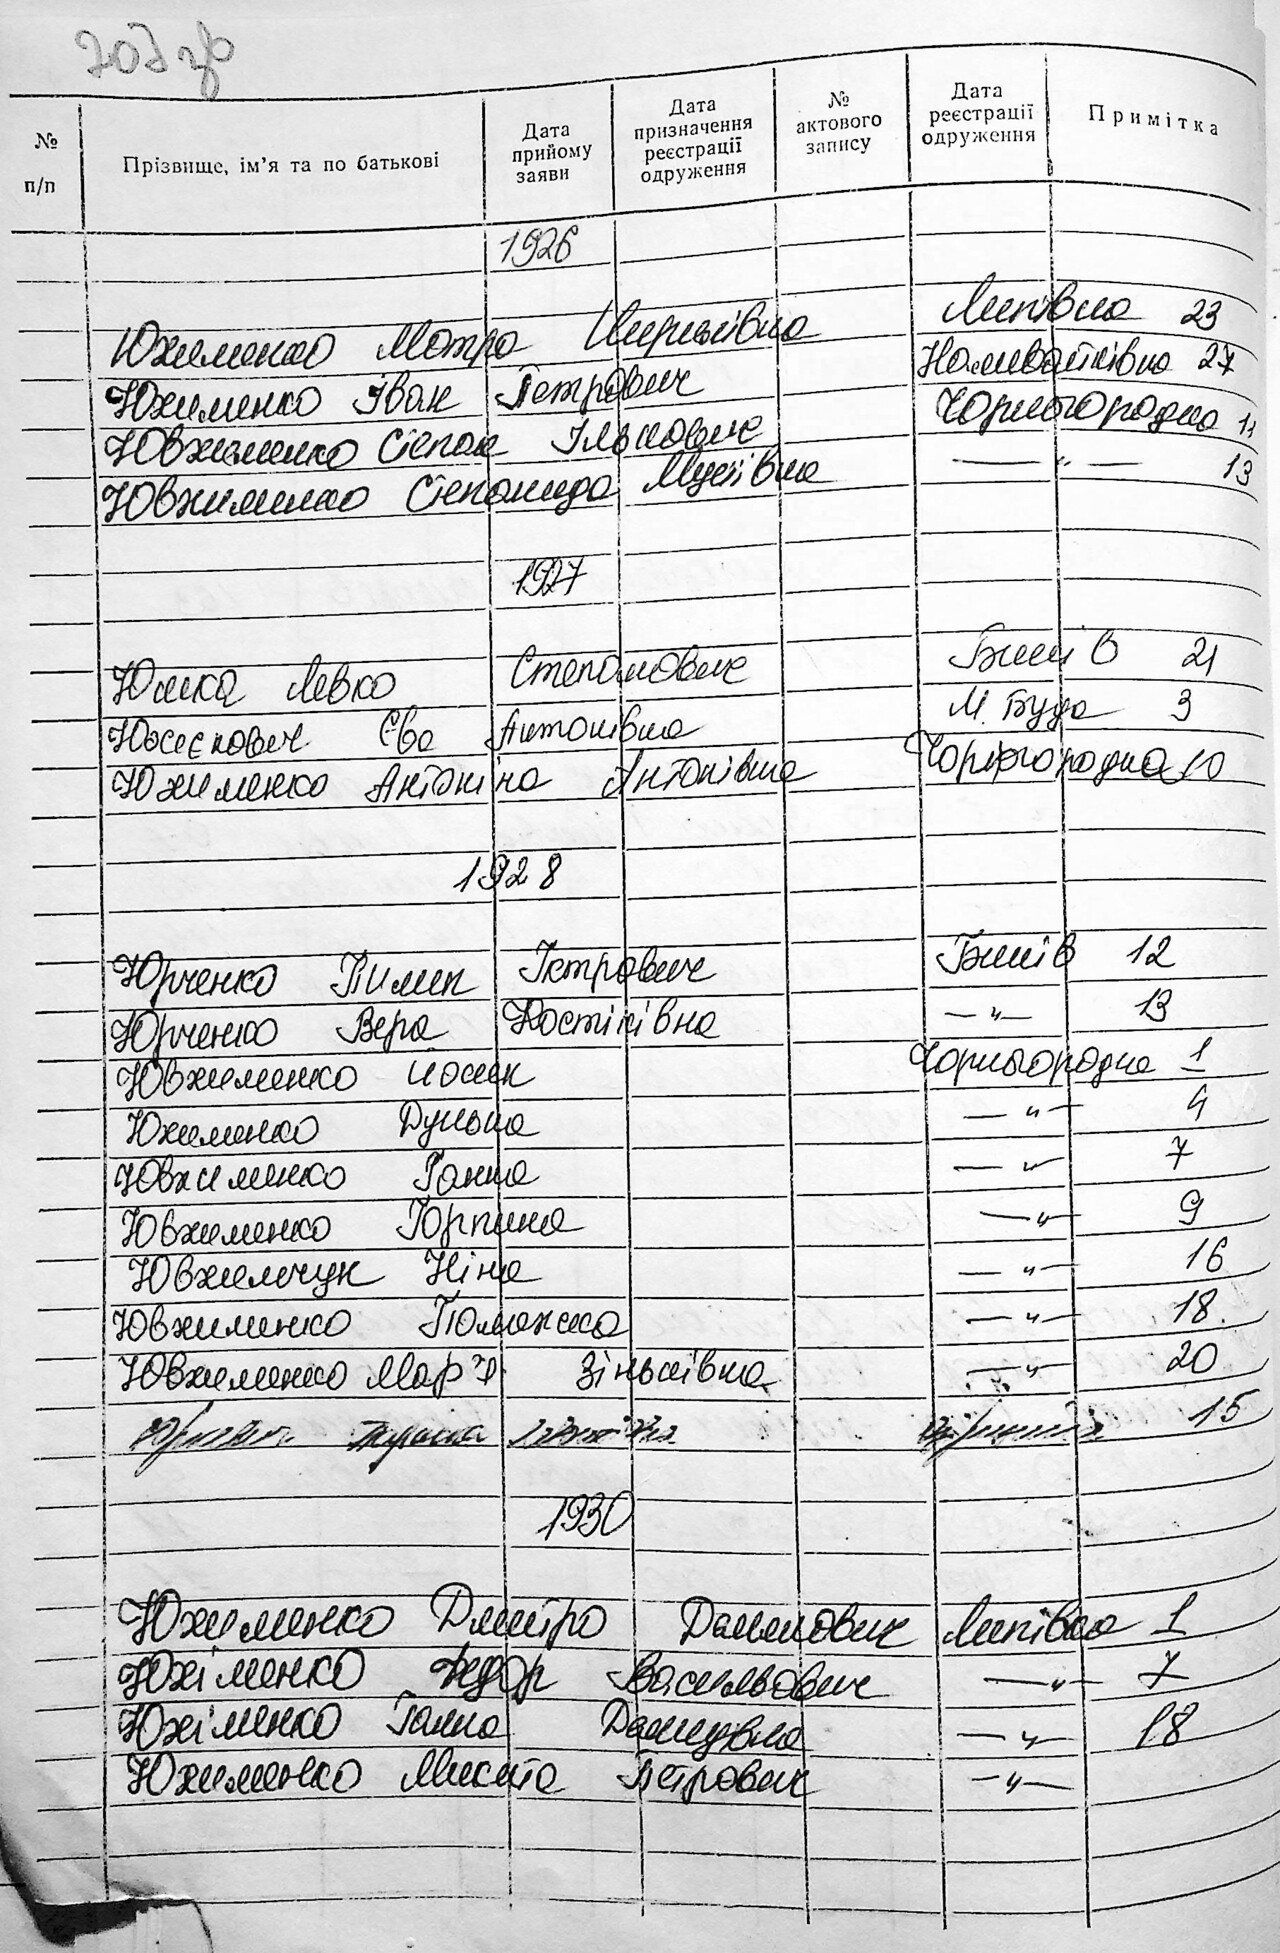 203 зв
№ п/п
Прізвище, ім'я та по батькові
Дата прийому заяви
Дата призначення реєстрації одруження
№ актового запису
Дата реєстрації одруження
Примітка
1926
Юхименко Мотра Кирилівна Липівка 23
Юхименко Іван Петрович Наливайківка 27
Ювхименко Степан Ількович Чорногородка 11
Ювхименко Степанида Мусіївна —"— 13
1927
Юшка Левко Степанович Бишів 21
Єва Антонівна М. Буда 3
Юхименко Антоніна Антонівна Чорногородка 10
1928
Юрченко Пилип Петрович Бишів 12
Юрченко Вера Костівна —"— 13
Ювхименко Йосип Чорногородка 1
Юхименко Дунька —"— 4
Ювхименко Ганна —"— 7
Ювхименко Горпина —"— 9
Ювхимчук Ніна —"— 16
Ювхименко Поліжка —"— 18.
Ювхименко Мар'я Зіньківна —"— 20
15
1930
Юхименко Дмитро Данилович Липівка 1
Юхіменко Федор Васильович —"— 7
Юхіменко Ганна Демидівна —"— 18
Юхименко Микита Петрович —"—